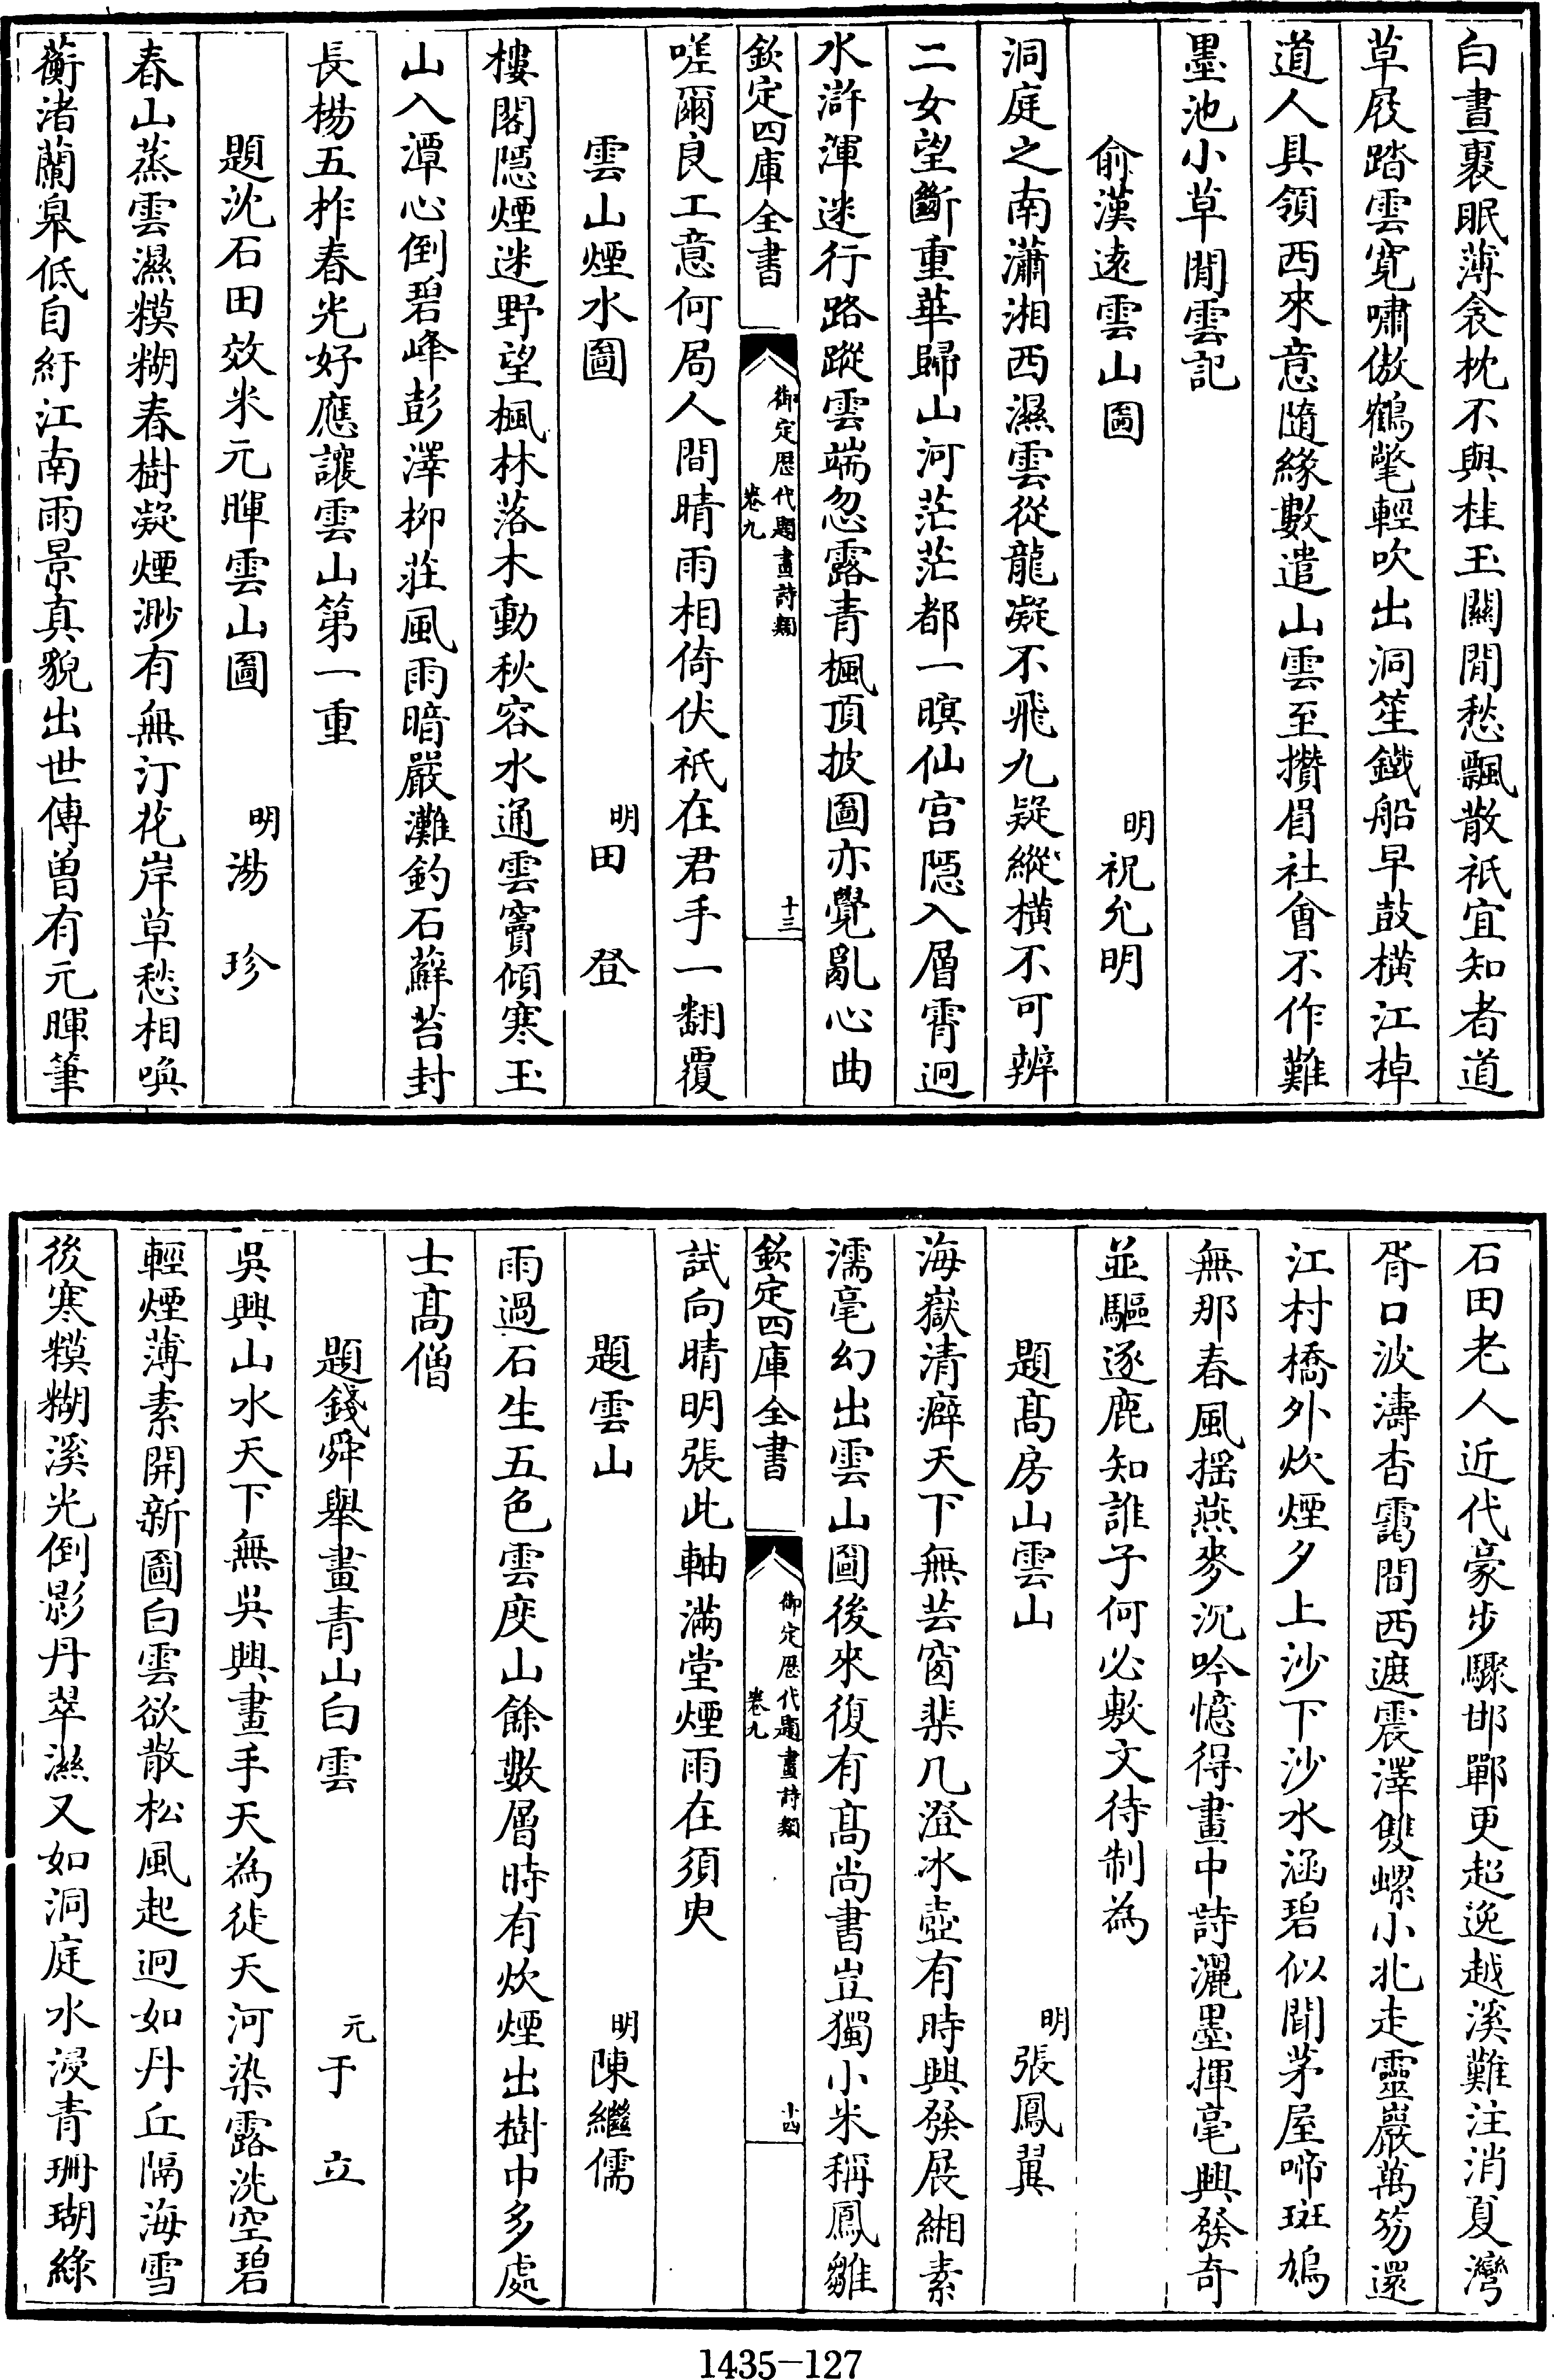 白晝裹眠薄衾枕不與桂玉關閒愁飄散祇宜知者道
草屐踏雲寛嘯傲鶴氅輕吹出洞笙鐵船早鼓橫江棹
道人具領西來意隨緣數遣山雲至攢眉社會不作難
墨池小草閒雲記
俞漢遠雲山圖
明祝允明
洞庭之南瀟湘西濕雲從龍凝不飛九疑縱橫不可辨
二女望斷重華歸山河茫茫都一暝仙宫隱入層霄迥
水滸渾迷行路蹤雲端忽露青楓頂披圖亦覺亂心曲
欽定四庫全書
御定歴代題畫詩類
卷九
十三
嗟爾良工意何局人間晴雨相倚伏祇在君手一翻覆
雲山煙水圖
明田登
樓閣隱煙迷野望楓林落木動秋容水通雲竇傾寒玉
山入潭心倒碧峰彭澤柳莊風雨暗嚴灘釣石蘚苔封
長楊五柞春光好應讓雲山第一重
題沈石田效米元暉雲山圖
明湯珍
春山蒸雲濕糢糊春樹凝煙渺有無汀花岸草愁相喚
蘅渚蘭臯低自紆江南雨景真貌出世傳曾有元暉筆
石田老人近代豪步驟邯鄲更超逸越溪難注消夏灣
胥口波濤杳靄間西遮震澤雙螺小北走靈巖萬笏還
江村橋外炊煙夕上沙下沙水涵碧似聞茅屋啼斑鳩
無那春風揺燕麥沉吟憶得畫中詩灑墨揮毫興發奇
並驅逐鹿知誰子何必敷文待制為
題髙房山雲山
明張鳳翼
海嶽清癖天下無芸窗棐几澄冰壺有時興發展緗素
濡毫幻出雲山圖後來復有髙尚書豈獨小米稱鳳雛
欽定四庫全書
御定歴代題畫詩類
卷九
十四
試向晴明張此軸滿堂煙雨在須臾
題雲山
明陳繼儒
雨過石生五色雲庋山餘數層時有炊煙出樹中多處
士髙僧
題錢舜舉畫青山白雲
元于立
吳興山水天下無吳興畫手天為徒天河染露洗空碧
輕煙薄素開新圖白雲欲散松風起迥如丹丘隔海雪
後寒糢糊溪光倒影丹翠濕又如洞庭水浸青珊瑚綠
1435-127